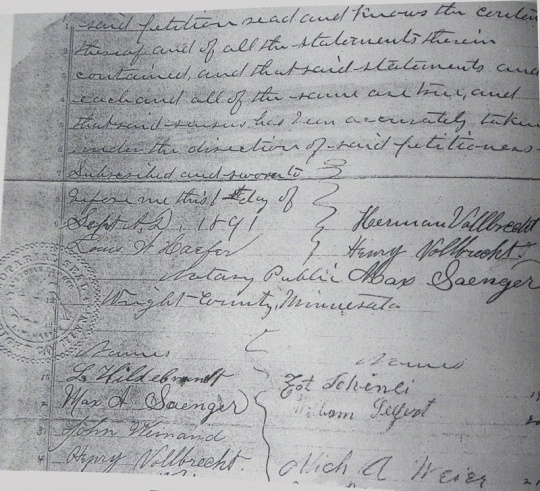 said petition read and knows the conten
thereof and of all the statements therein
contained, and that said statements and
each and all of the same are true, and
that said census has been accurately taken
under the direction of said petitioners
Subscribed and sworn to
before me this 1st day of
Sept A.D. 1891
Herman Vollbrecht
Louis W.
Henry Vollbrecht.
Notary Public Max Saenger
Wright County, Minnesota
Names
Names
L Hildebrandt
Max A Saenger
John
Henry Vollbrecht.
Mich A Weier